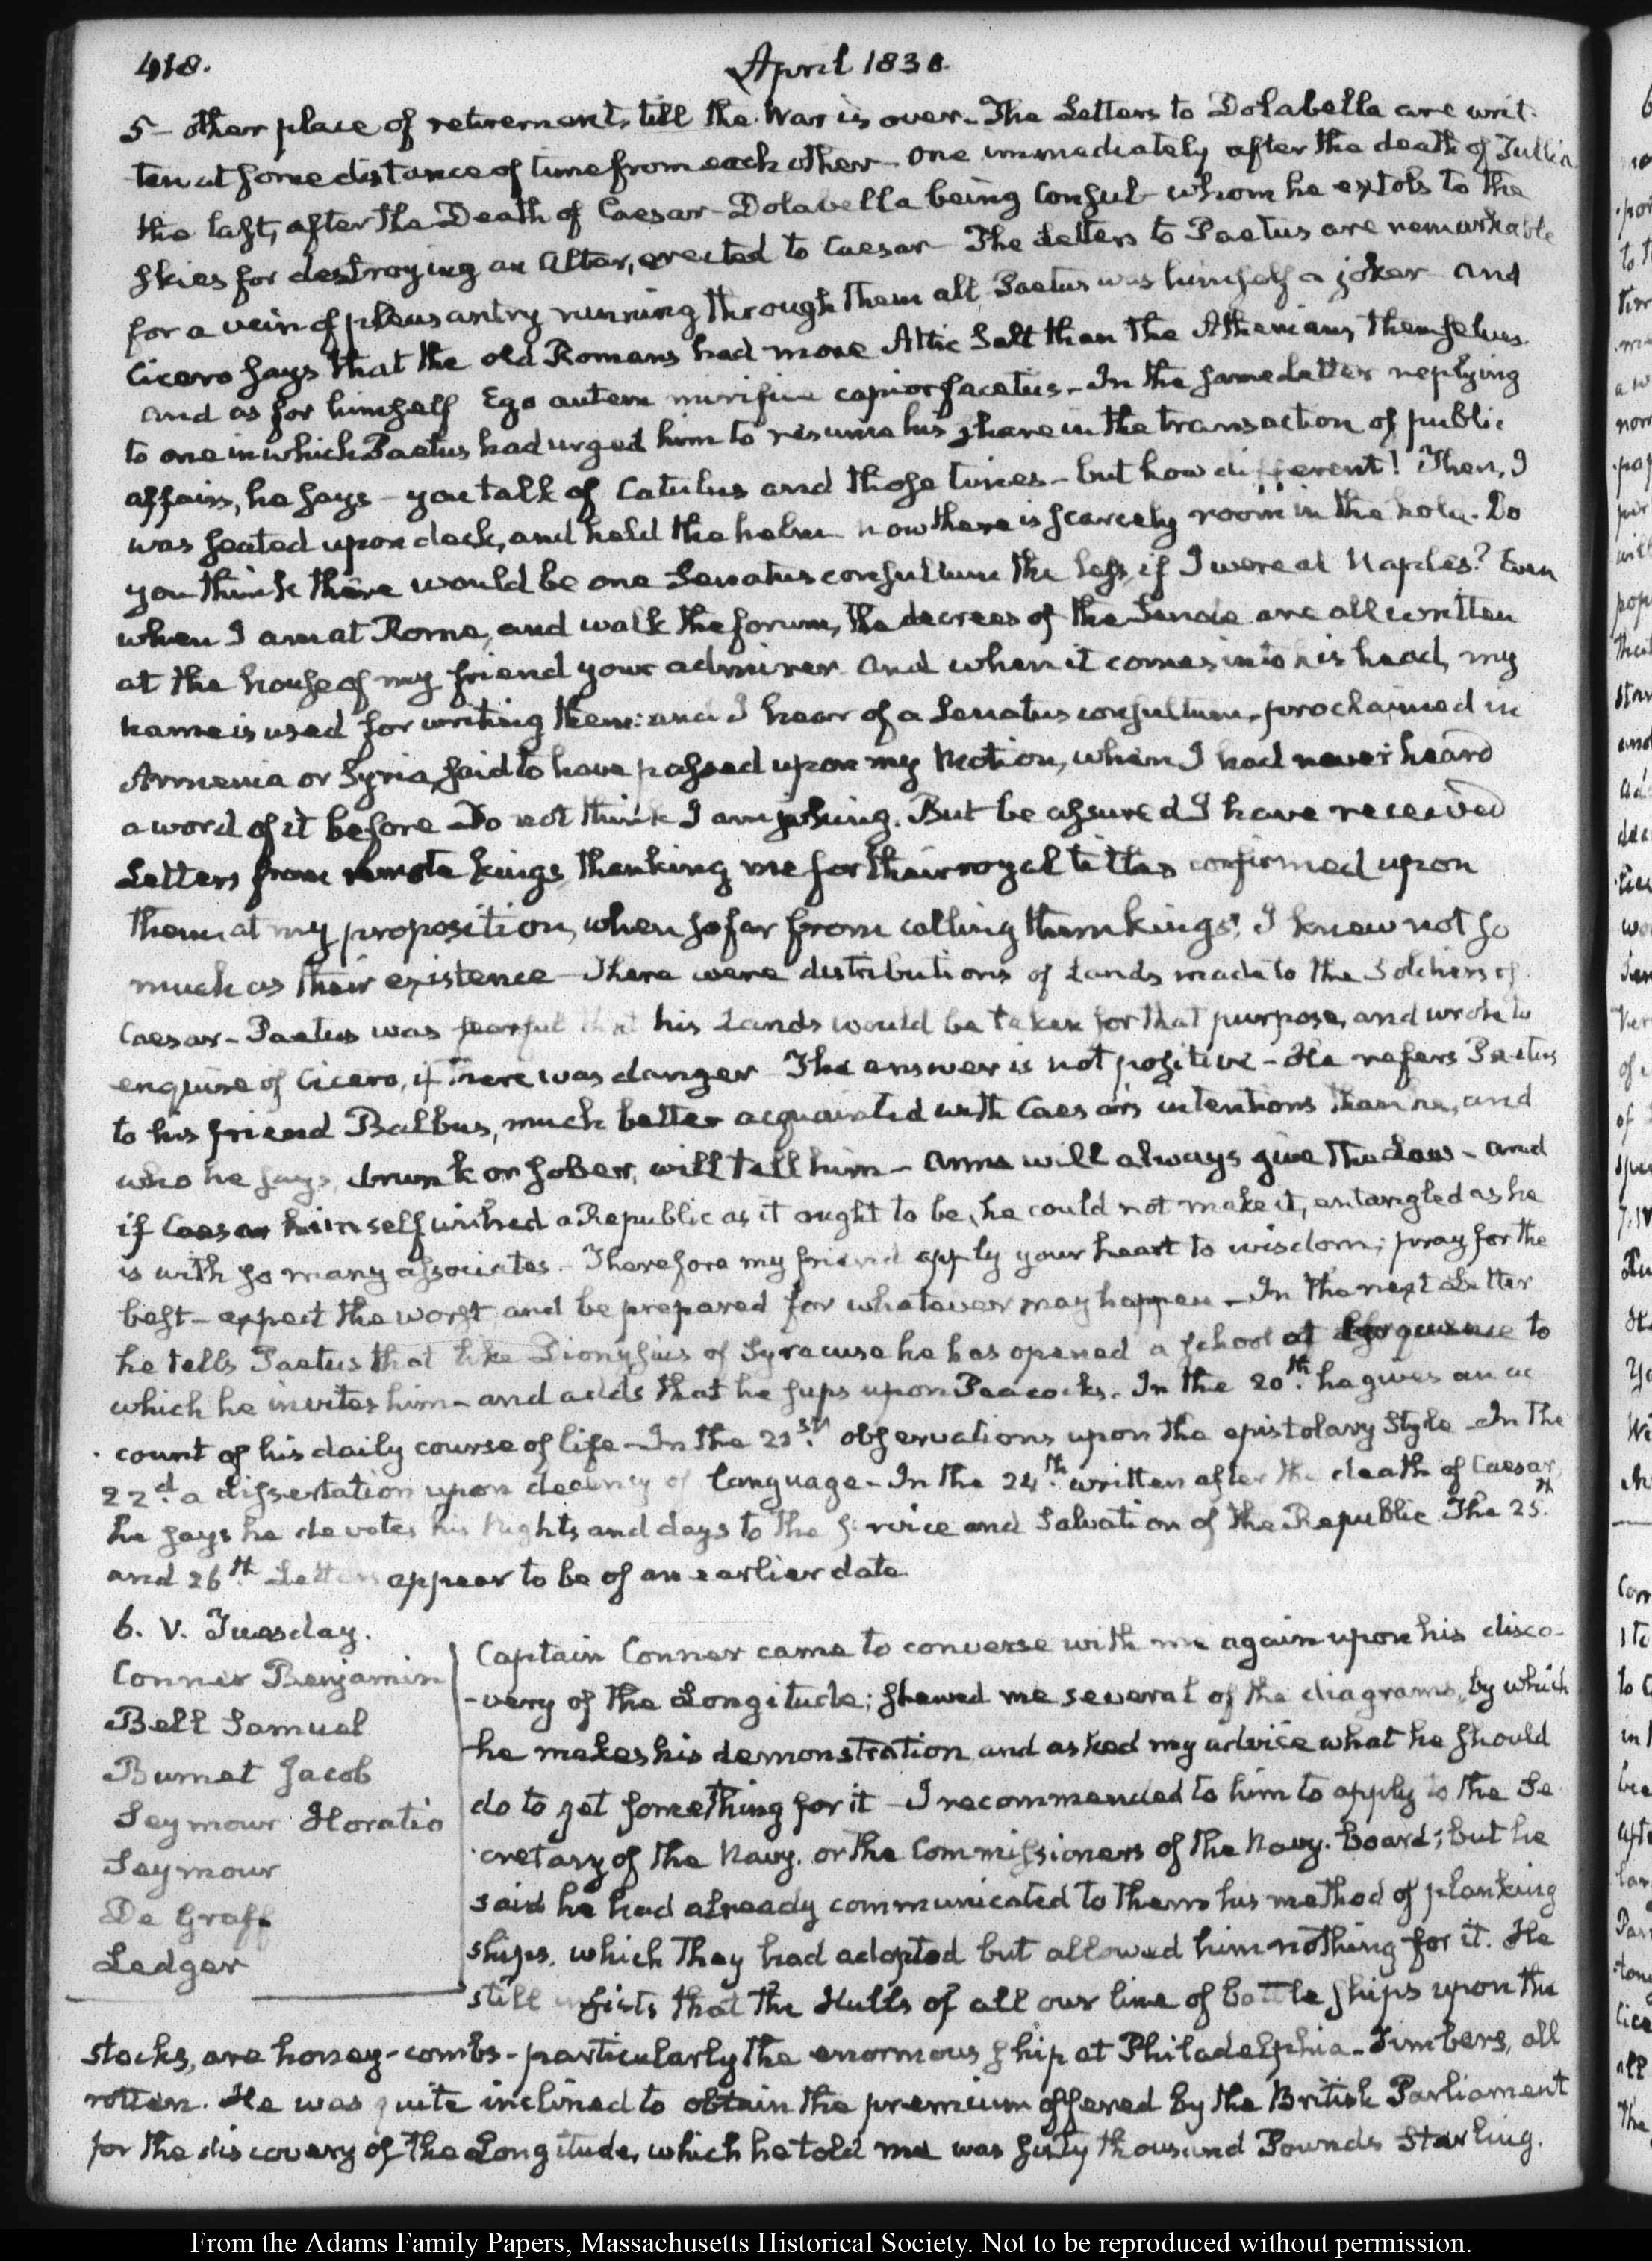 418.
April 1830.
5 – other place of retirement, till the War is over – The Letters to Dolabella are writ-
ten at some distance of time from each other – one immediately after the death of Tullia
the last, after the Death of Caesar – Dolabella being Consul – whom he extols to the
skies for destroying an Altar, erected to Caesar – The Letters to Paetus are remarkable
for a vein of pleasantry running through them all Paetus was himself a joker and
Cicero says that the old Romans had more Attic Salt than the Athenians themselves
and as for himself Ego autem mirifice capior facetiis – In the same Letter replying
to one in which Paetus had urged him to resume his share in the transaction of public
affairs, he says – you talk of Catulus and those times – but how different! Then, I
was seated upon deck, and held the helm now there is scarcely room in the hold. Do
you think there would be one Senatus consultum the less, if I were at Naples? Even
when I am at Rome, and walk the forum, the decrees of the Senate are all written
at the house of my friend your admirer and when it comes into his head, my
name is used for writing them: and I hear of a Senatus consultum, proclaimed in
Armenia or Syria, said to have passed upon my Motion, when I had never heard
a word of it before – Do not think I am joking. But be assured I have received
Letters from remote kings, thanking me for their royal titles confirmed upon
them at my proposition, when so far from calling them kings, I knew not so
much as their existence – There were distributions of Lands made to the Soldiers of
Caesar – Paetus was fearful that his Lands would be taken for that purpose, and wrote to
enquire of Cicero, if there was danger – The answer is not positive – He refers Paetus
to his friend Balbus, much better acquainted with Caesar's intentions than he, and
who he says, drunk or sober, will tell him – Arms will always give the Law – and
if Caesar himself wished a Republic as it ought to be, he could not make it, entangled as he
is with so many associates – Therefore my friend apply your heart to wisdom; pray for the
best – expect the worst, and be prepared for whatever may happen – In the next Letter
he tells Paetus that like Dionysius of Syracuse he has opened a school of Eloquence to
which he invites him – and adds that he sups upon Peacocks. In the 20.th he gives an ac
count of his daily course of life – In the 21.st observations upon the epistolary Style – In the
22.d a dissertation upon decency of language – In the 24.th written after the death of Caesar,
he says he devotes his Nights and days to the service and Salvation of the Republic. The 25.th
and 26.th Letters appear to be of an earlier date.
6. V. Tuesday.
Conner Benjamin
Bell Samuel
Burnet Jacob
Seymour Horatio
Seymour
De Graff
Ledger
Captain Conner came to converse with me again upon his disco-
-very of the Longitude; shewed me several of the diagrams, by which
he makes his demonstration and asked my advice what he should
do to get something for it – I recommended to him to apply to the Se
cretary of the Navy, or the Commissioners of the Navy Board; but he
said he had already communicated to them his method of planking
ships, which they had adopted but allowed him nothing for it. He
still insists that the Hulls of all our line of battle ships upon the
stocks, are honey-combs – particularly the enormous ship at Philadelphia – Timbers, all
rotten. He was quite inclined to obtain the premium offered by the British Parliament
for the discovery of the Longitude, which he told me was sixty thousand Pounds Sterling.
From the Adams Family Papers, Massachusetts Historical Society. Not to be reproduced without permission.